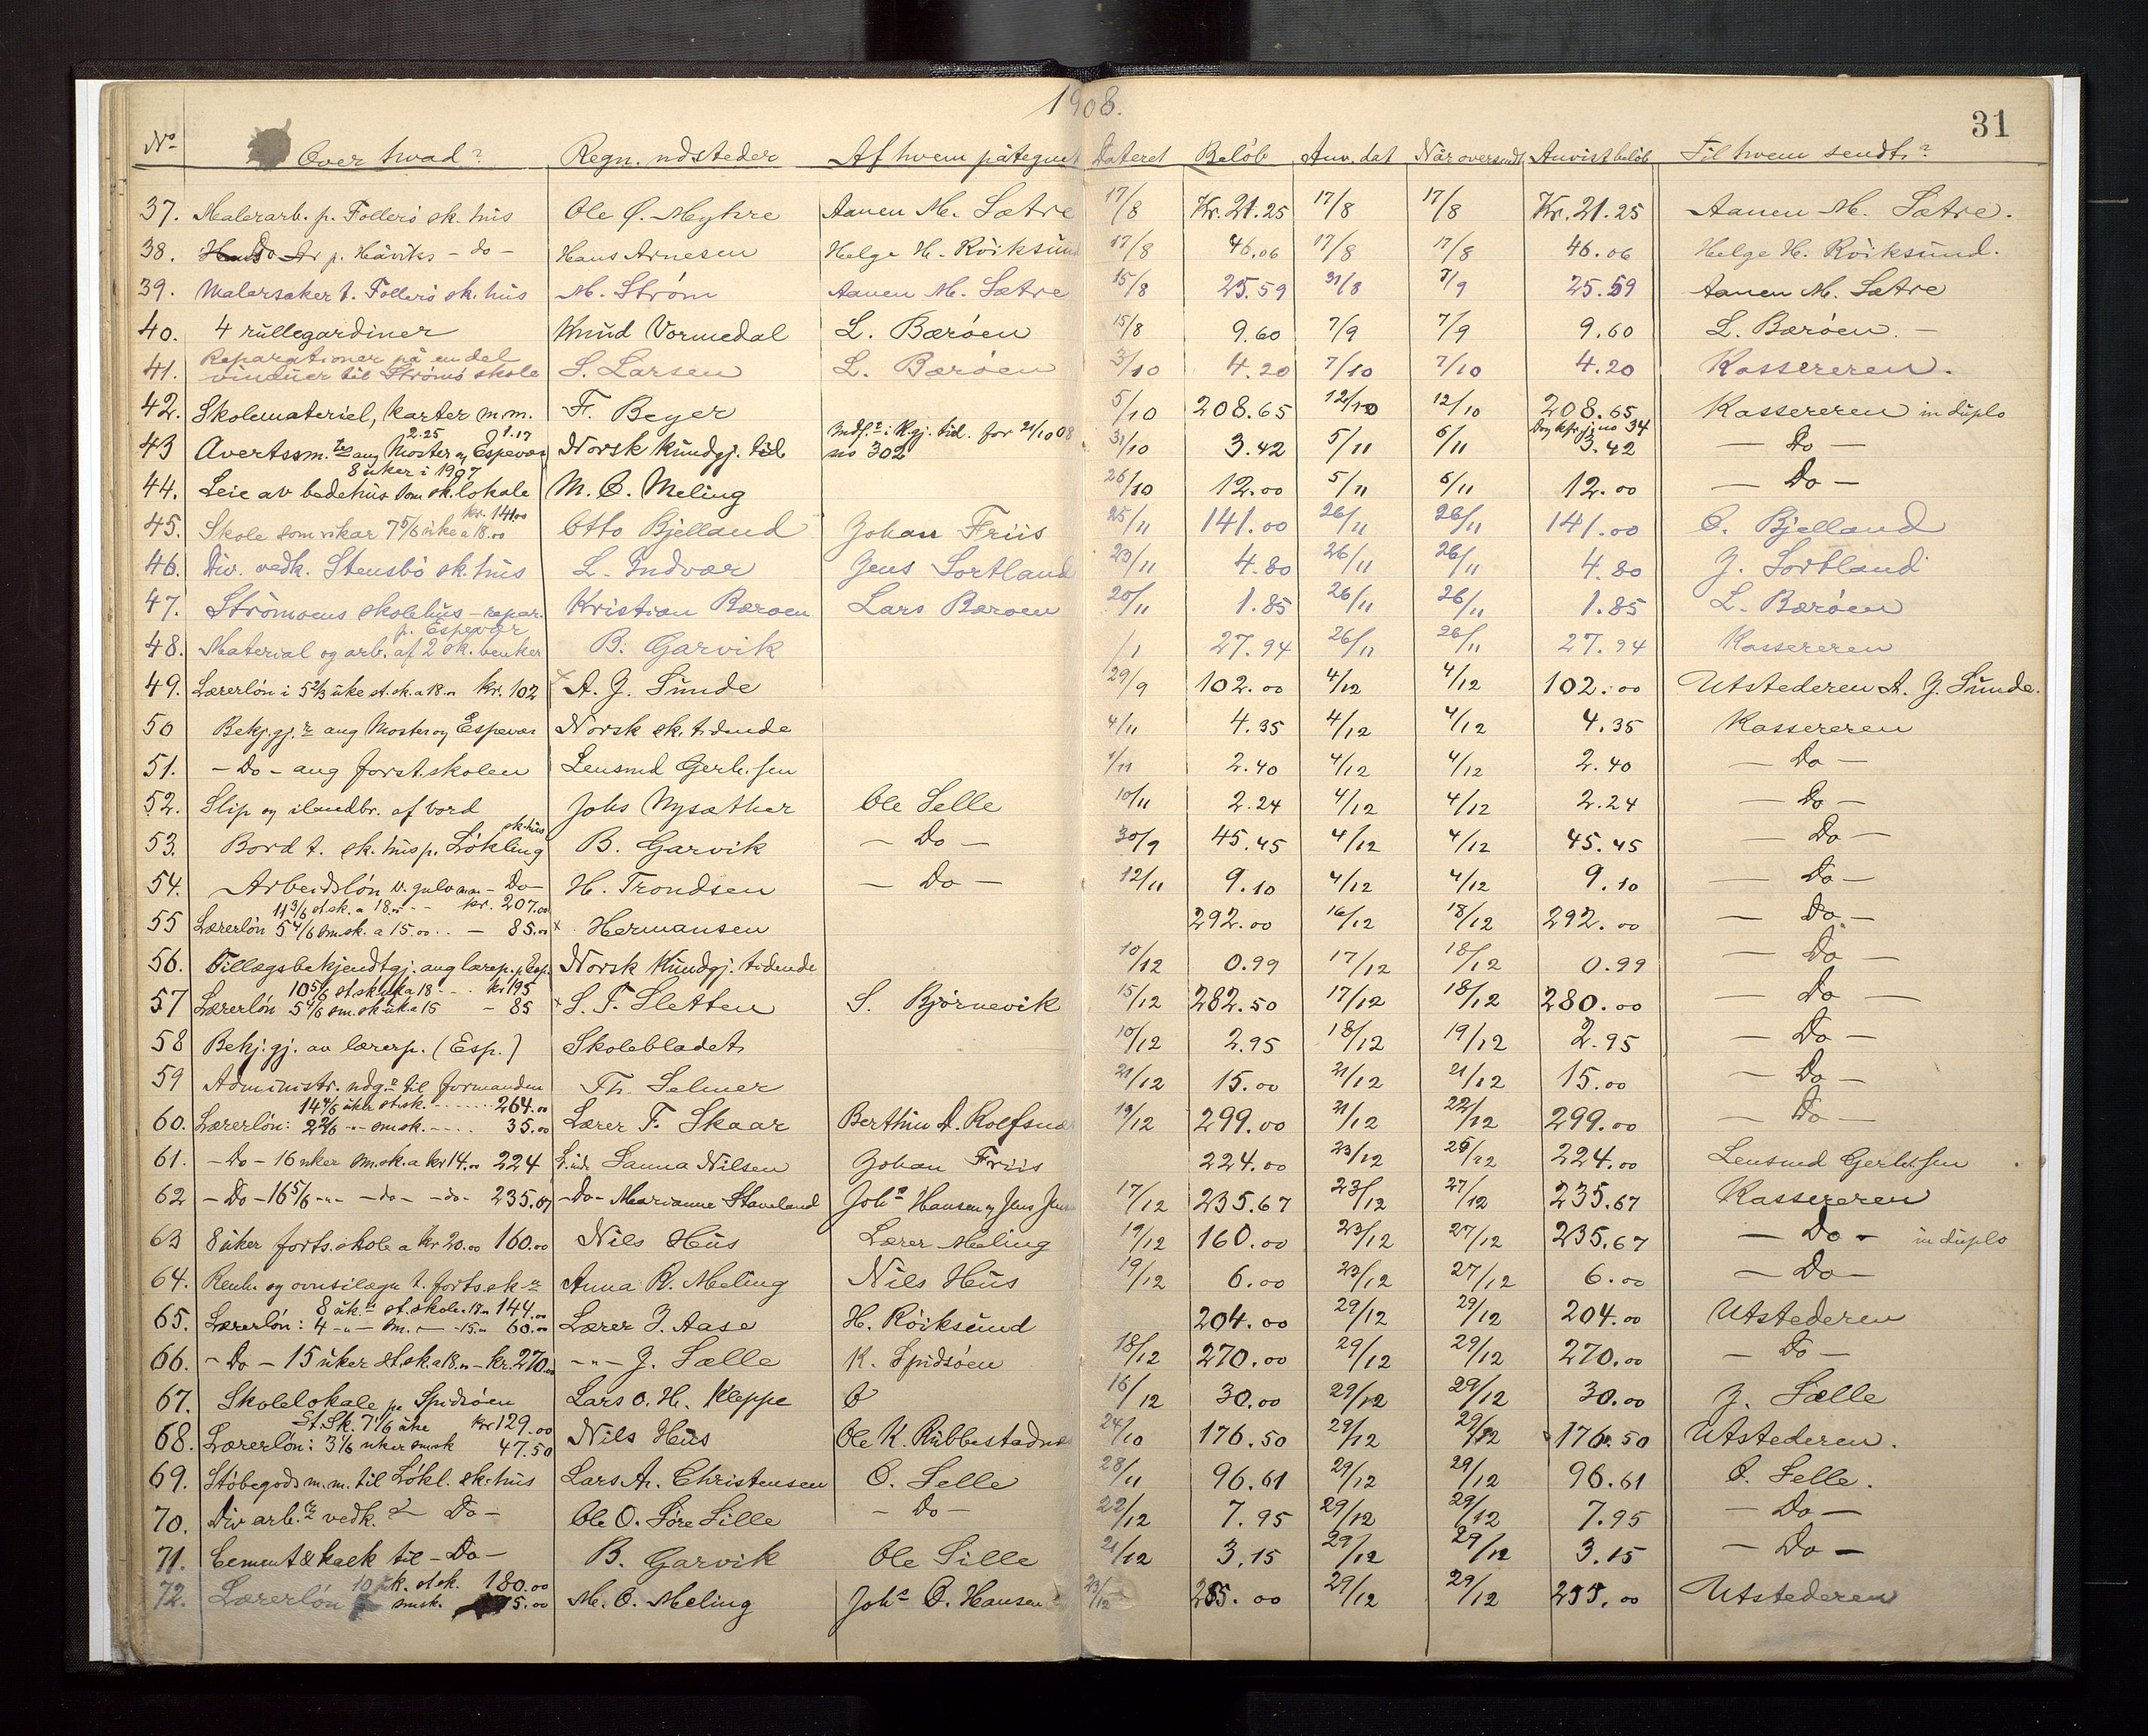 1908.
31
No Over hvad? Regn. udsteder Af hvem påtegnet Dateret Beløb Anv. dat Når oversendt Anvist beløb Til hvem sendt?
37. Malerarb. p. Follerö sk. hus Ole Ø. Myhre Aanen M. Sætre 17/8 Kr. 21.25 17/8 17/8 Kr. 21.25 Aanen M. Sætre.
38. Do p. Håviks - do - Hans Arnesen Helge H. Röiksund 17/8 46.06 17/8 17/8 46.06 Helge H. Röiksund.
39. Malersaker t. Follerö sk. hus M. Strøm Aanen M. Sætre 15/8 25.59 31/8 7/9 25.59 Aanen M. Sætre
40. 4 rullegardiner Knud Vormedal L. Bærøen 15/8 9.60 7/9 7/9 9.60 L. Bærøen. -
Reparationer på en del
41. vinduer til Strømø skole S. Larsen L. Bærøen 3/10 4.20 7/10 7/10 4.20 Kassereren.
42. Skolemateriel, karter m.m. F. Beyer 5/10 208.65 12/10 12/10 208.65 Kassereren in duplo
2.25 1.17 Indf. i Kgj. tid. for 21/10 08 34
43 Avertssm. ang Moster og Espevær Norsk Kundgj. tid no 302 31/10 3.42 5/11 6/11 3.42 - Do -
8 uker i 1907
44. Leie av bedehus som sk. lokale M. O. Meling 26/10 12.00 5/11 6/11 12.00 - Do -
kr. 141.00
45. Skole som vikar 7 5/6 uke a 18.00 Otto Bjelland Johan Friis 25/11 141.00 26/11 26/11 141.00 O. Bjelland
46. Div. vedk. Stensbö sk. hus L. Indvær Jens Sortland 23/11 4.80 26/11 26/11 4.80 J. Sortland
47. Strömoens skolehus - repar. Kristian Bæroen Lars Bæroen 20/11 1.85 26/11 26/11 1.85 L. Bærøen
p. Espevær
48. Material og arb. af 2 sk. benker B. Garvik 27.94 26/11 26/11 27.94 Kassereren
49. Lærerlön i 5 2/3 uke st. sk. a 18.00 kr. 102 A. J. Sunde 29/9 102.00 4/12 4/12 102.00 Utstederen A. J. Sunde.
50 Bekj.gj. ang Moster og Espevær Norsk sk. tidende 4/11 4.35 4/12 4/12 4.35 Kassereren
51. - Do - ang forst.skolen Lensmd Gerh.sen 1/11 2.40 4/12 4/12 2.40 - Do -
52. Slip og ilandbr. af bord Johs Nysæther Ole Selle 10/11 2.24 4/12 4/12 2.24 - Do -
sk. hus
53. Bord t. sk. hus p. Løkling B. Garvik - Do - 30/9 45.45 4/12 4/12 45.45 - Do -
54. Arbeidslön v. gulv m.m. - Do - H. Trondsen - Do - 12/11 9.10 4/12 4/12 9.10 - Do -
11 3/6 st. sk. a 18.00 - - kr. 207.00
55 Lærerlön 5 4/6 sm. sk. a 15.00 . . - 85.00 x Hermansen 292.00 16/12 18/12 292.00 - Do -
56. Tillægsbekjendtgj. ang lærep. p. Esp. Norsk Kundgj. tidende 10/12 0.99 17/12 18/12 0.99 - Do -
10 5/6 st. sk. uk. a 18 - - . kr 195
57 Lærerlön 5 4/6 sm. sk. uk. a 15 - 85 x S. T. Sletten S. Bjørnevik 15/12 282.50 17/12 18/12 280.00 - Do -
58 Bekj. gj. av lærerp. (Esp.) Skolebladet 10/12 2.95 18/12 19/12 2.95 - Do -
59 Administr. udg. til formanden Th. Selmer 21/12 15.00 21/12 21/12 15.00 - Do -
14 4/6 uker st. sk. - - - - - 264.00
60. Lærerlön: 2 2/6 -"- sm. sk. - - . . 35.00 Lærer F. Skaar Berthin A. Rolfsnæs 19/12 299.00 21/12 22/12 299.00 - Do -
61. - Do - 16 uker sm. sk. a kr 14.00 224 L.ind. Sanna Nilsen Johan Friis 224.00 23/12 26/12 224.00 Lensmd Gerh.sen
62 - Do - 16 5/6 -"- -do- -do- 235.67 - Do - Marianne Staveland Johs Hansen og Jens 17/12 235.67 23/12 27/12 235.67 Kassereren
63 8 uker forts. skole a kr 20.00 160.00 Nils Hus Lærer Meling 19/12 160.00 23/12 27/12 235.67 - Do - in duplo
64. Renh. og ovnsilægn. t. forts. sk. Anna R. Meling Nils Hus 19/12 6.00 23/12 27/12 6.00 - Do -
8 uk. st. skole a 18.00 144.00
65. Lærerlön: 4 -"- sm. - -15.00 60.00 Lærer J. Aase H. Röiksund 204.00 29/12 29/12 204.00 Utstederen
66. - Do - 15 uker st. sk. a 18.00 - kr. 270.00 -"- J. Sælle K. Spidsöen 18/12 270.00 29/12 29/12 270.00 - Do -
67. Skolelokale pa Spidsöen Lars O. H. Kleppe O 16/12 30.00 29/12 29/12 30.00 J. Sælle
St. Sk. 7 1/6 uke kr 129.00
68. Lærerlön: 3 1/6 uker sm. sk 47.50 Nils Hus Ole K. Rubbestadnes 24/10 176.50 29/12 29/12 176.50 Utstederen.
69. Stöbegods m.m. til Løkl. sk. hus Lars A. Christensen O. Selle 28/11 96.61 29/12 29/12 96.61 O. Selle.
70. Div arb. vedk. - Do - Ole O. Søre Sille - Do - 22/12 7.95 29/12 29/12 7.95 - Do -
71. Cement & kalk til - Do - B. Garvik Ole Sille 21/12 3.15 29/12 29/12 3.15 - Do -
10 uk. st. sk. 180.00
72. Lærerlön sm. sk. 75.00 M. O. Meling Johs O. Hansen 23/12 255.00 29/12 29/12 255.00 Utstederen